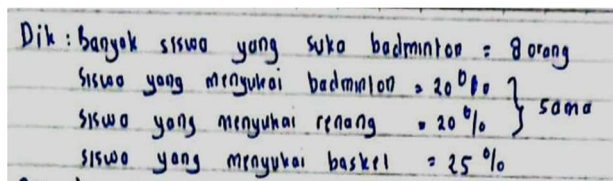 Dik : Banyak siswa yang suka badminton = 8 orang
siswa yang menyukai badminton = 20% } sama
siswa yang menyukai renang = 20%
siswa yang menyukai basket = 25 %